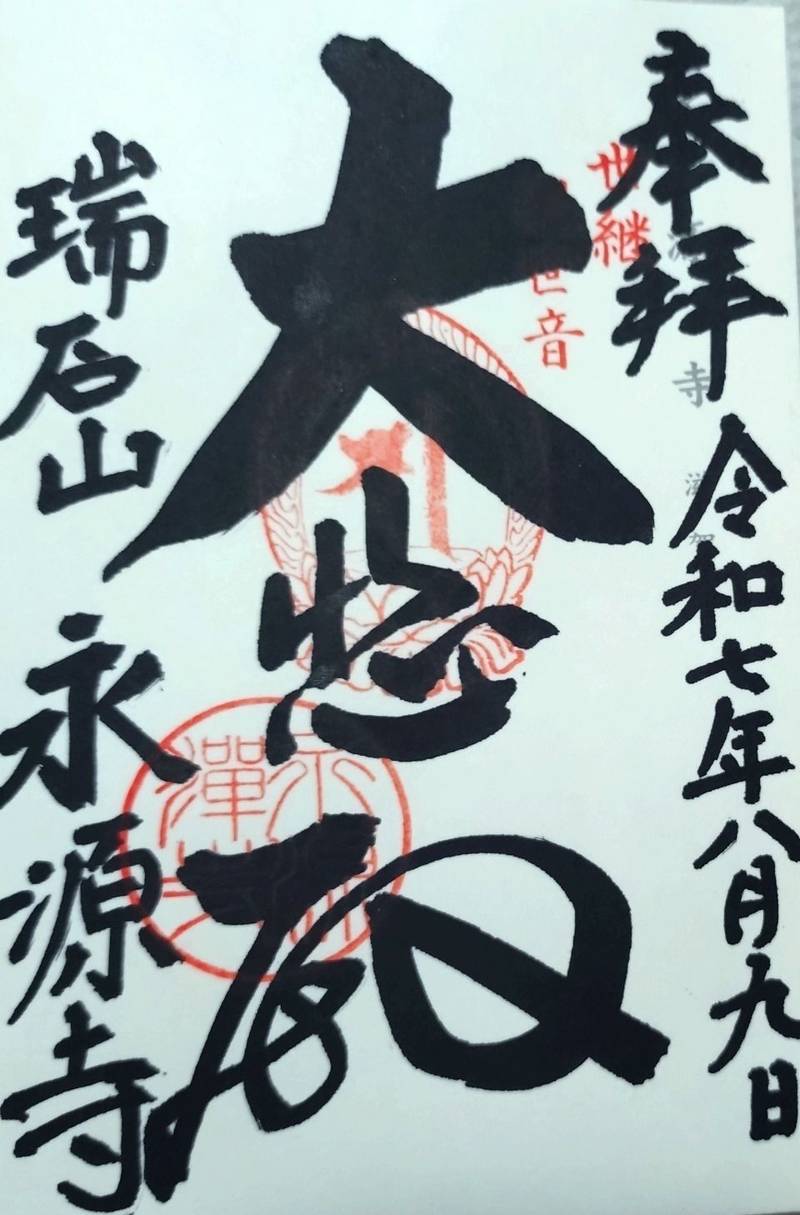 奉拝
令和七年八月九日
世継
世音
大悲殿
瑞石山
永源寺
寺